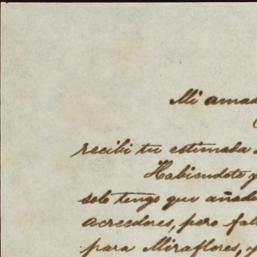 Mi amad
recibi tu estimada
Habiendote y
solo tengo que añad
acreedores, pero fal
para Miraflores, y